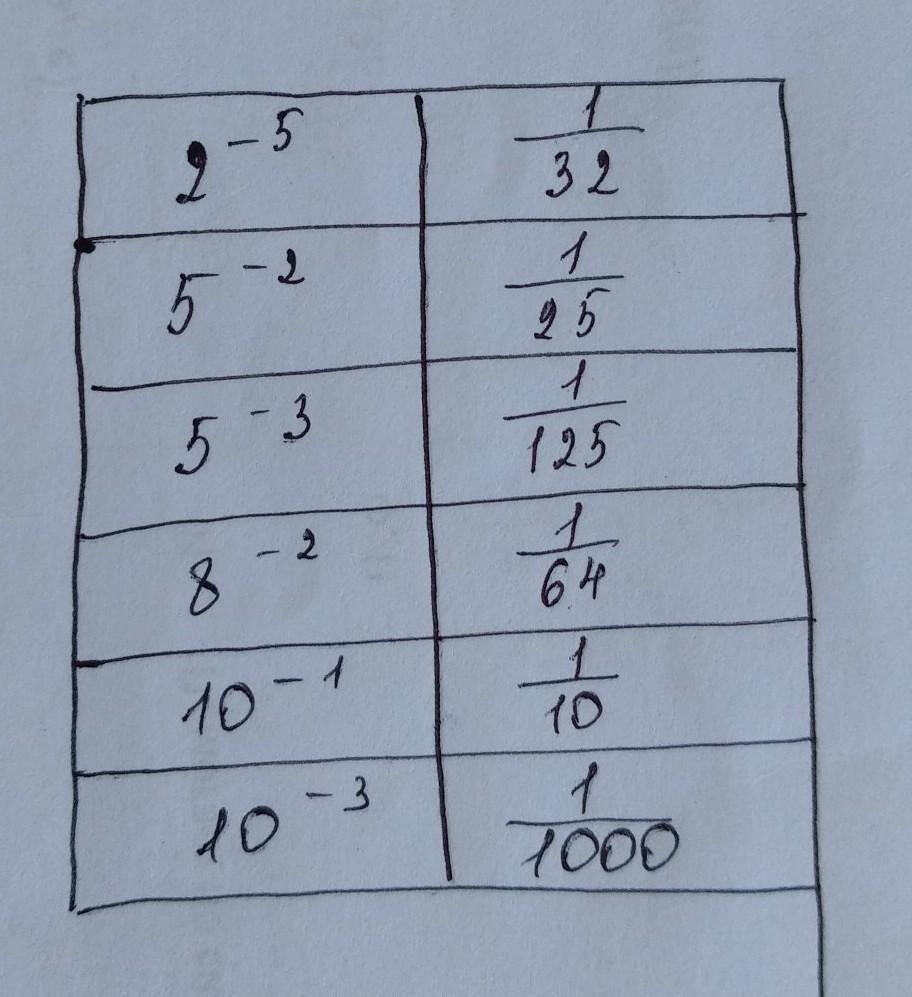 2⁻⁵ 1/32
5⁻² 1/25
5⁻³ 1/125
8⁻² 1/64
10⁻¹ 1/10
10⁻³ 1/1000